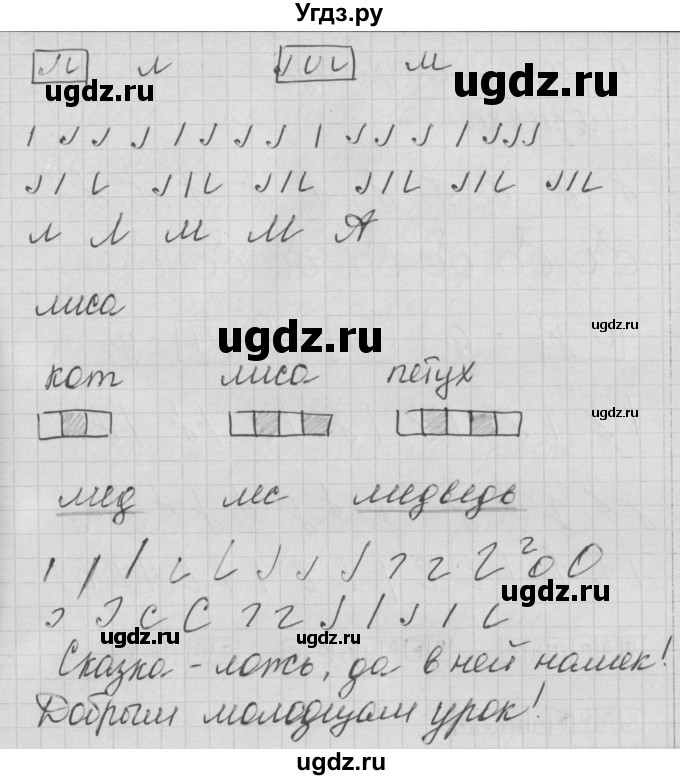 Угдз.ру
л м
ugdz.ru ugdz.ru
л Л м М А
лиса
ugdz.ru ugdz.ru
кот лиса петух
ugdz.ru
мед лес медведь
ugdz.ru
ugdz.ru ugdz.ru
Сказка - ложь, да в ней намек!
Добрым молодцам урок!
ugdz.ru ugdz.ru